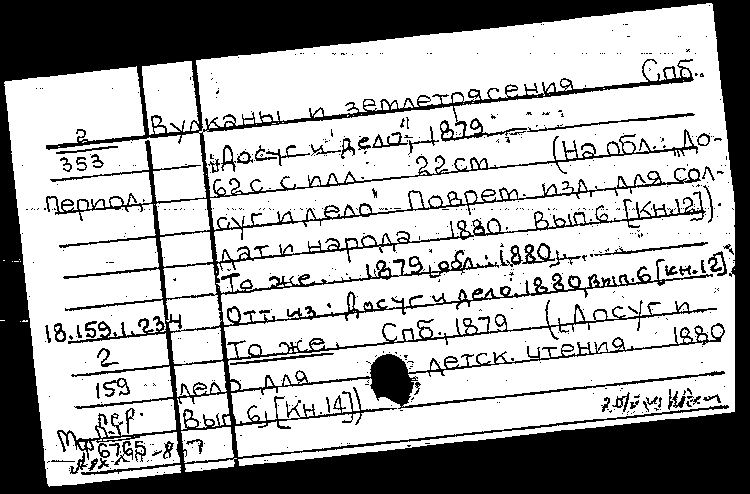 Вулканы и землетрясения. Спб.,
2
353
„Досуг и дело", 1879
62 с. с илл. 22 см. (На обл.: „До-
Период.
суг и дело" Поврем. изд. для сол-
дат и народа. 1880. Вып. 6. [Кн.12]).
То же. 1879, обл.: 1880,
Отт. из: Досуг и дело. 1880, вып. 6 [кн. 12].
18.159.1.234
То же. Спб., 1879 („Досуг и
2
159
дело для детск. чтения. 1880
Вып. 6, [Кн.14])
пер.
Мф 6765